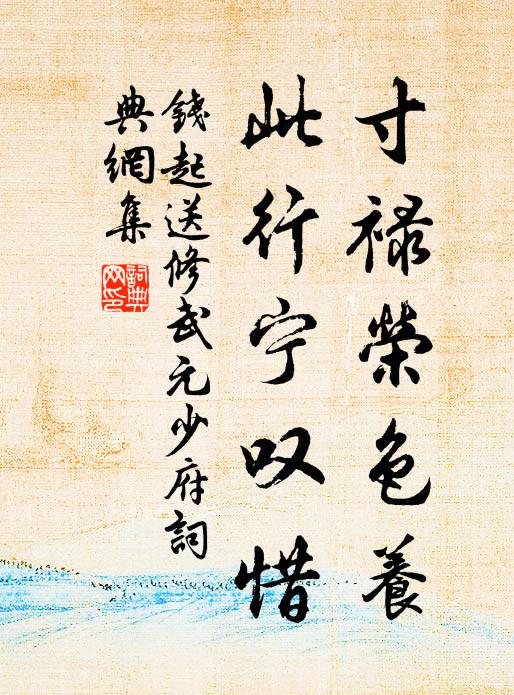 寸禄榮色養
此行宁叹惜
錢起送修武元少府詞
典網集
詞典
网印